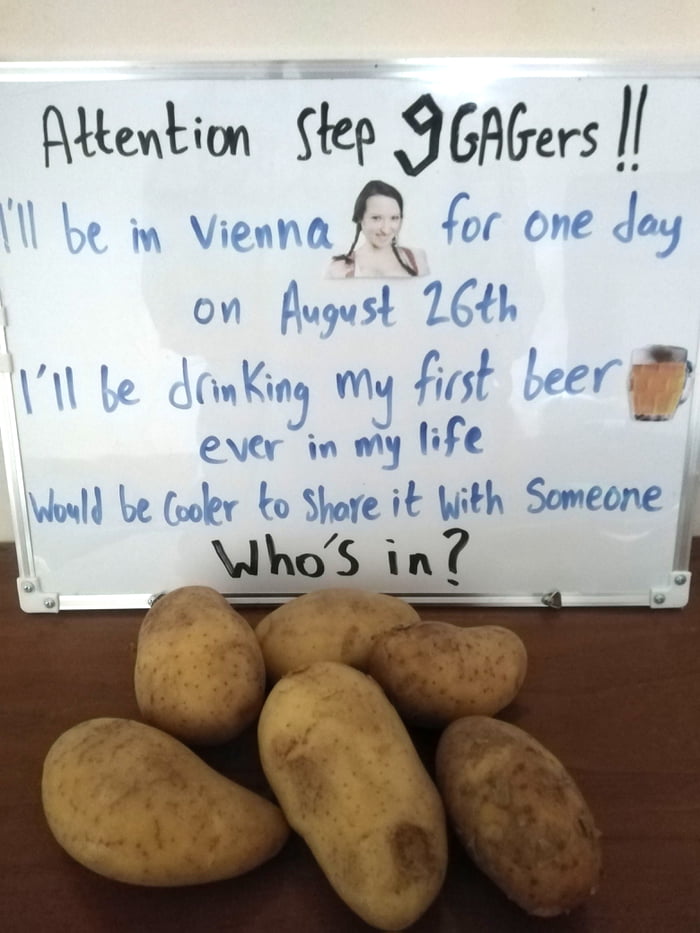 Attention Step 9GAGers !!
I'll be in Vienna for one day
on August 26th
I'll be drinking my first beer
ever in my life
Would be Cooler to Share it With Someone
Who's in?